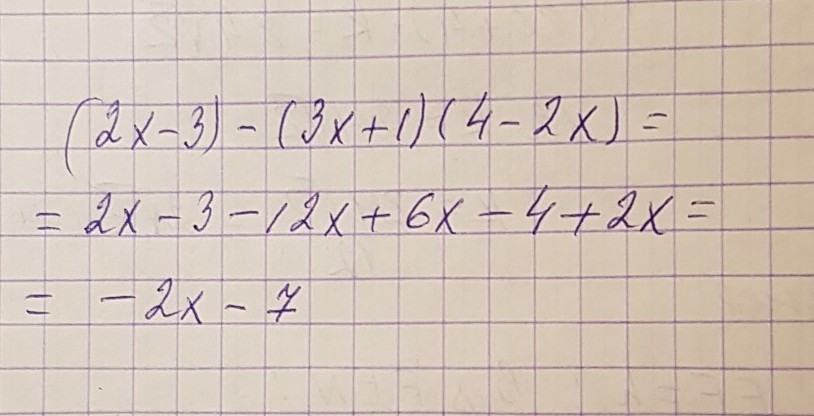 (2x-3)-(3x+1)(4-2x)=
=2x-3-12x+6x-4+2x=
= -2x-7